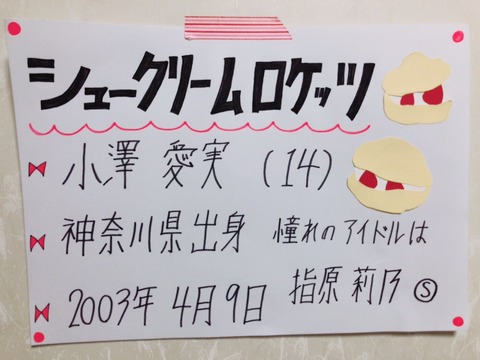 シュークリームロケッツ
小澤 愛実 (14)
神奈川県出身 憧れのアイドルは
2003年 4月9日 指原 莉乃 Ⓢ